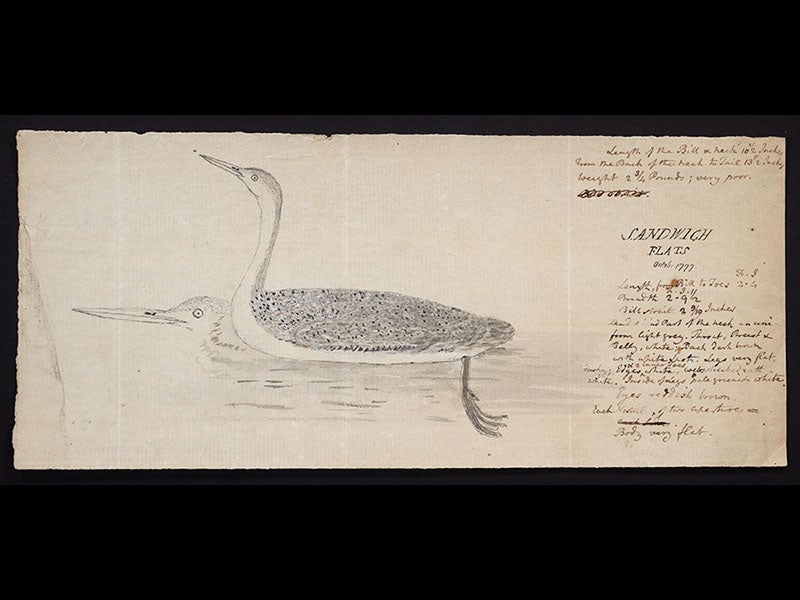 Length of the Bill & neck 10½ Inches
from the Back of the neck to Tail 13½ Inches
weight 2¾ Pounds; very poor.
SANDWICH
FLATS
Octb. 1777.
Ft. I
Length, from Bill to Toes 2.4
F. I.
Breadth 2.9½
Bill strait 2 9/10 Inches
Head & Part of the neck an uni
form light grey. Throat, Breast &
Belly, white; Back dark brown
with white spots. Legs very flat,
dusky; Edges white; webs
white. Inside of legs pale greenish white
Eyes reddish brown.
Each Nostril, of two apertures
Body very flat.